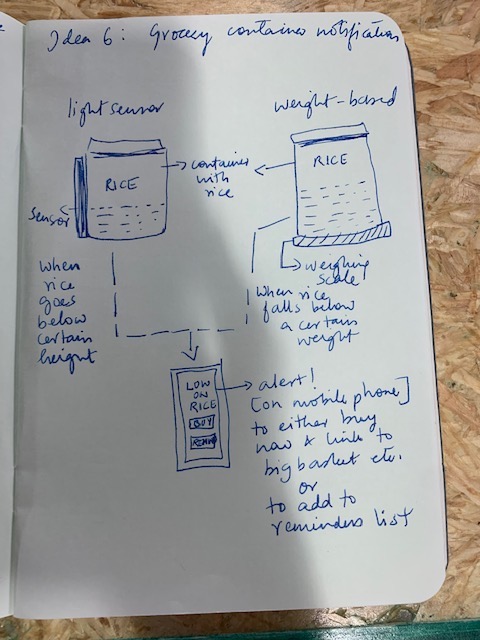 Idea 6: Grocery container notification
light sensor
weight-based
RICE
RICE
container
with
rice
sensor
weighing
scale
when
rice
goes
below
certain
height
when rice
falls below
a certain
weight
LOW
ON
RICE
BUY
alert!
[on mobile phone]
to either buy
now & link to
big basket etc.
or
to add to
reminders list